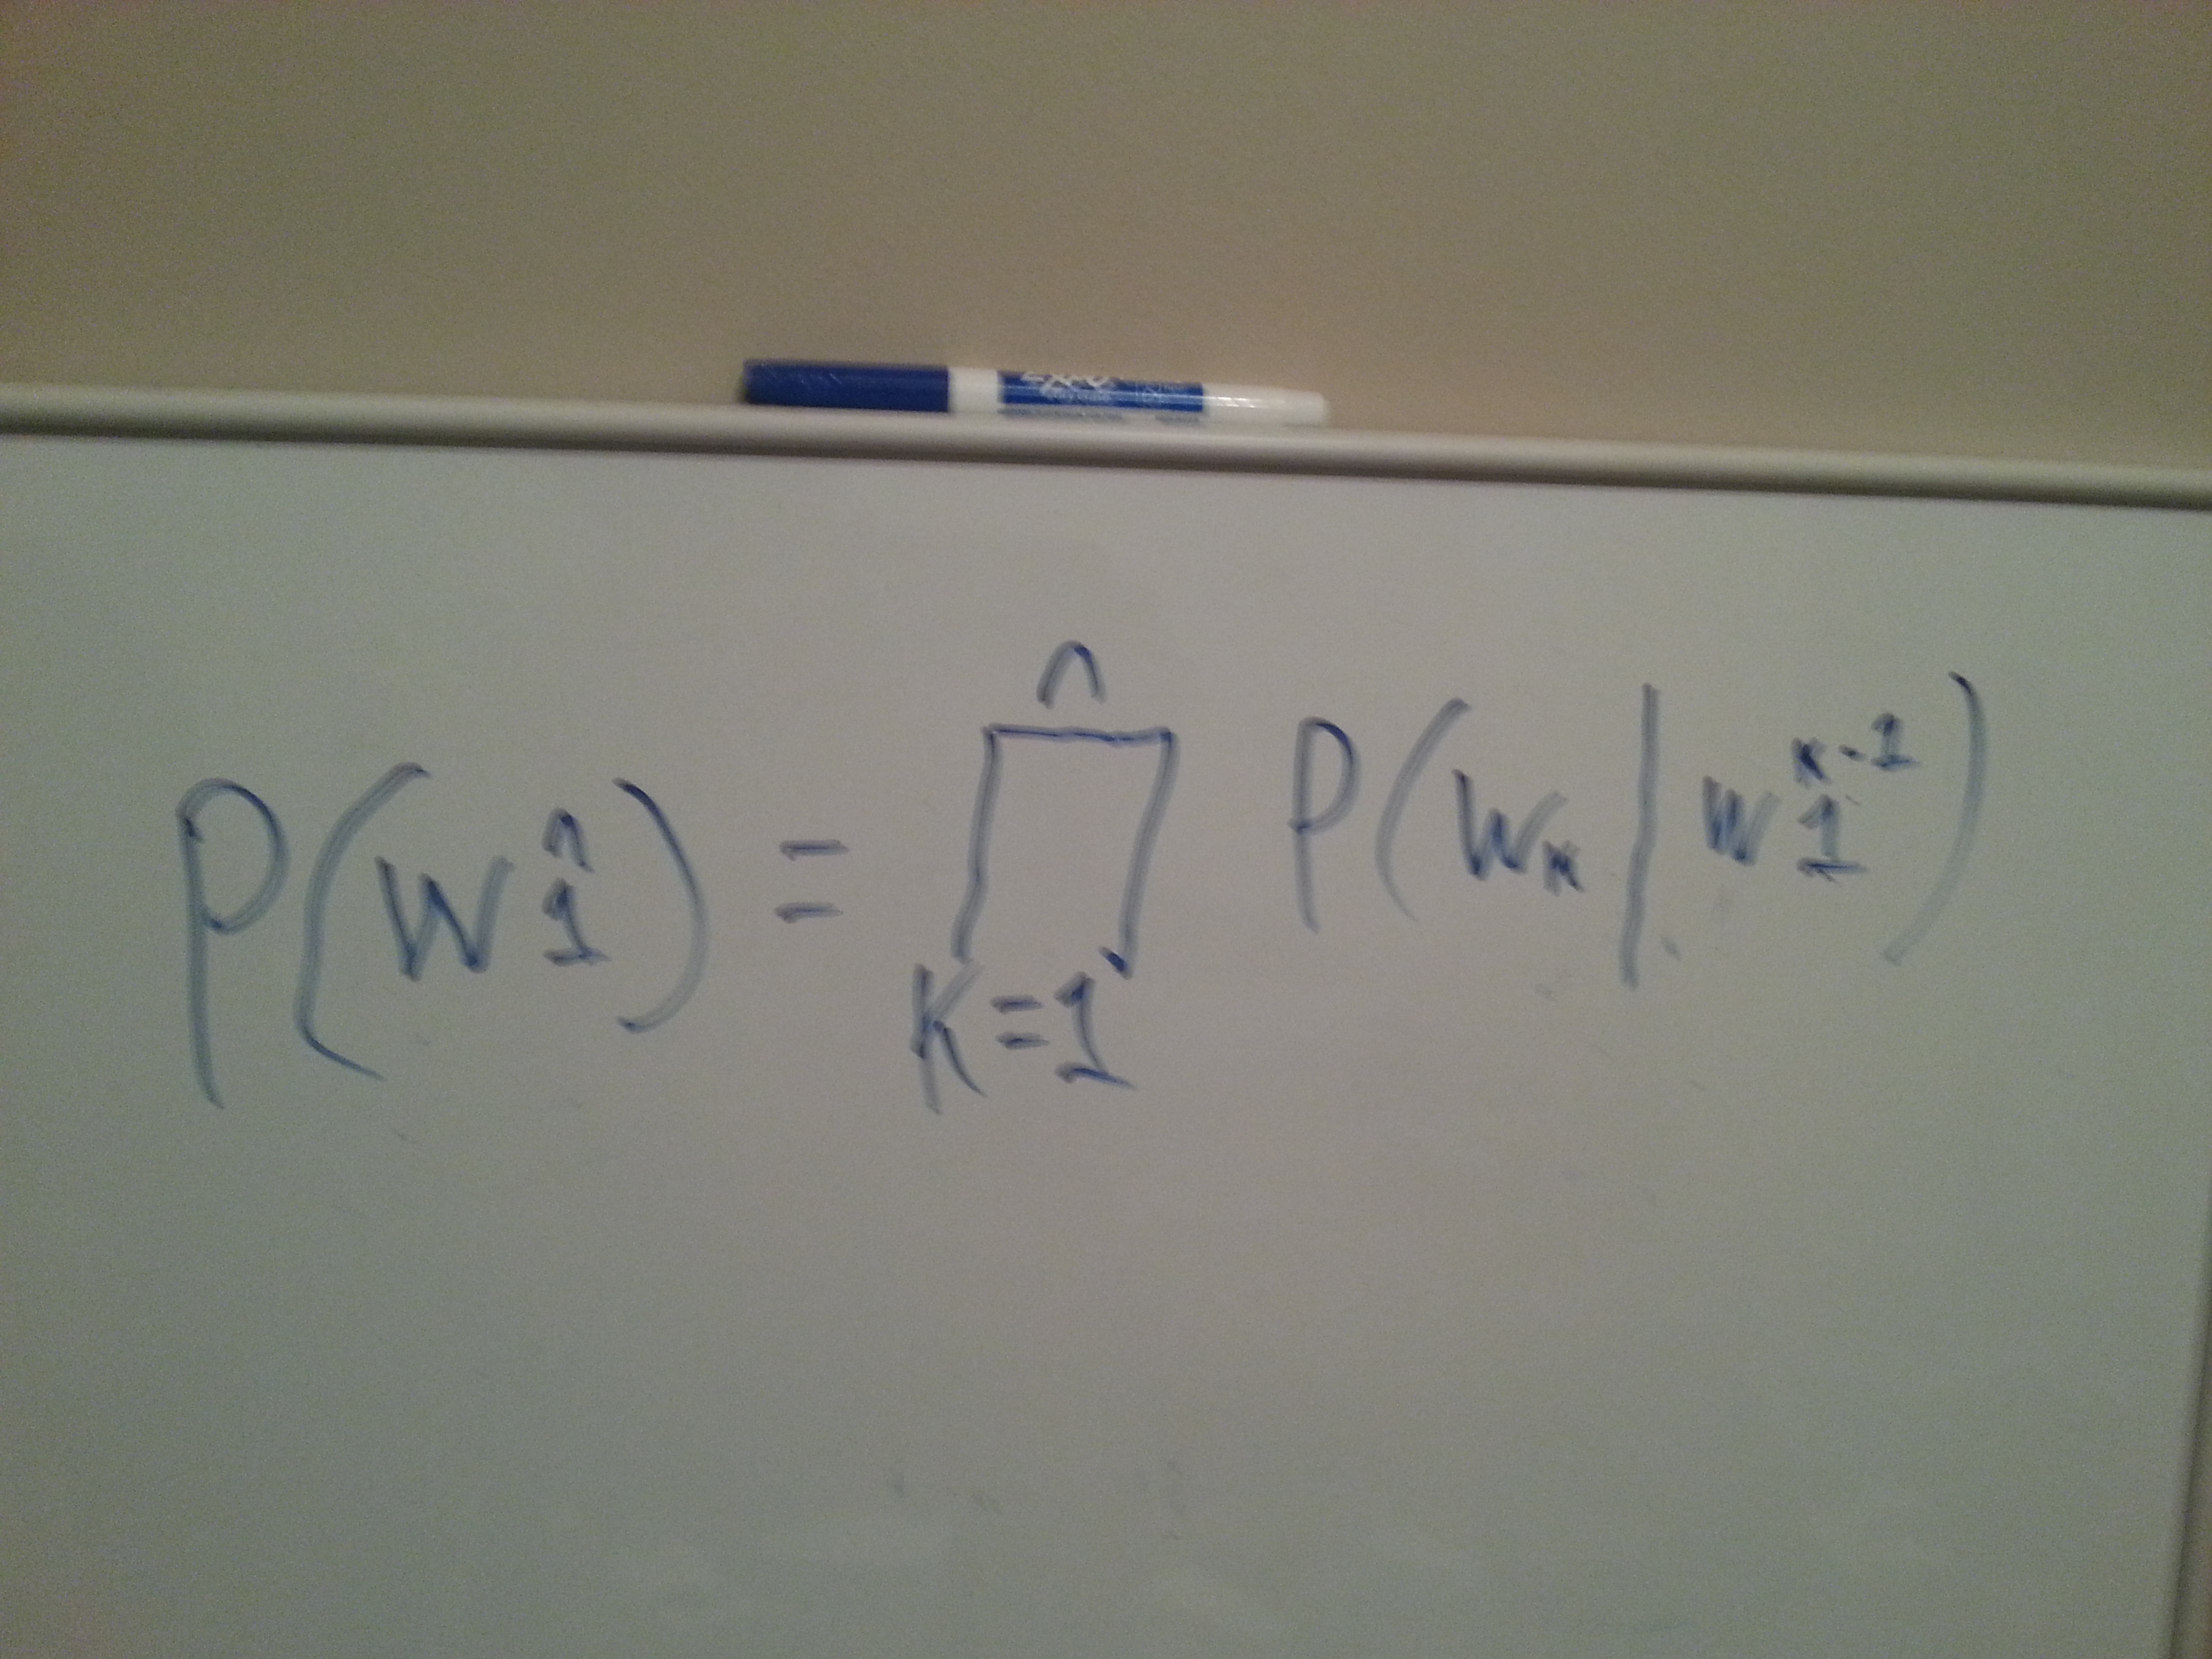 EXPO
P(w₁ⁿ) = ∏ₖ₌₁ⁿ P(wₖ | w₁ᵏ⁻¹)